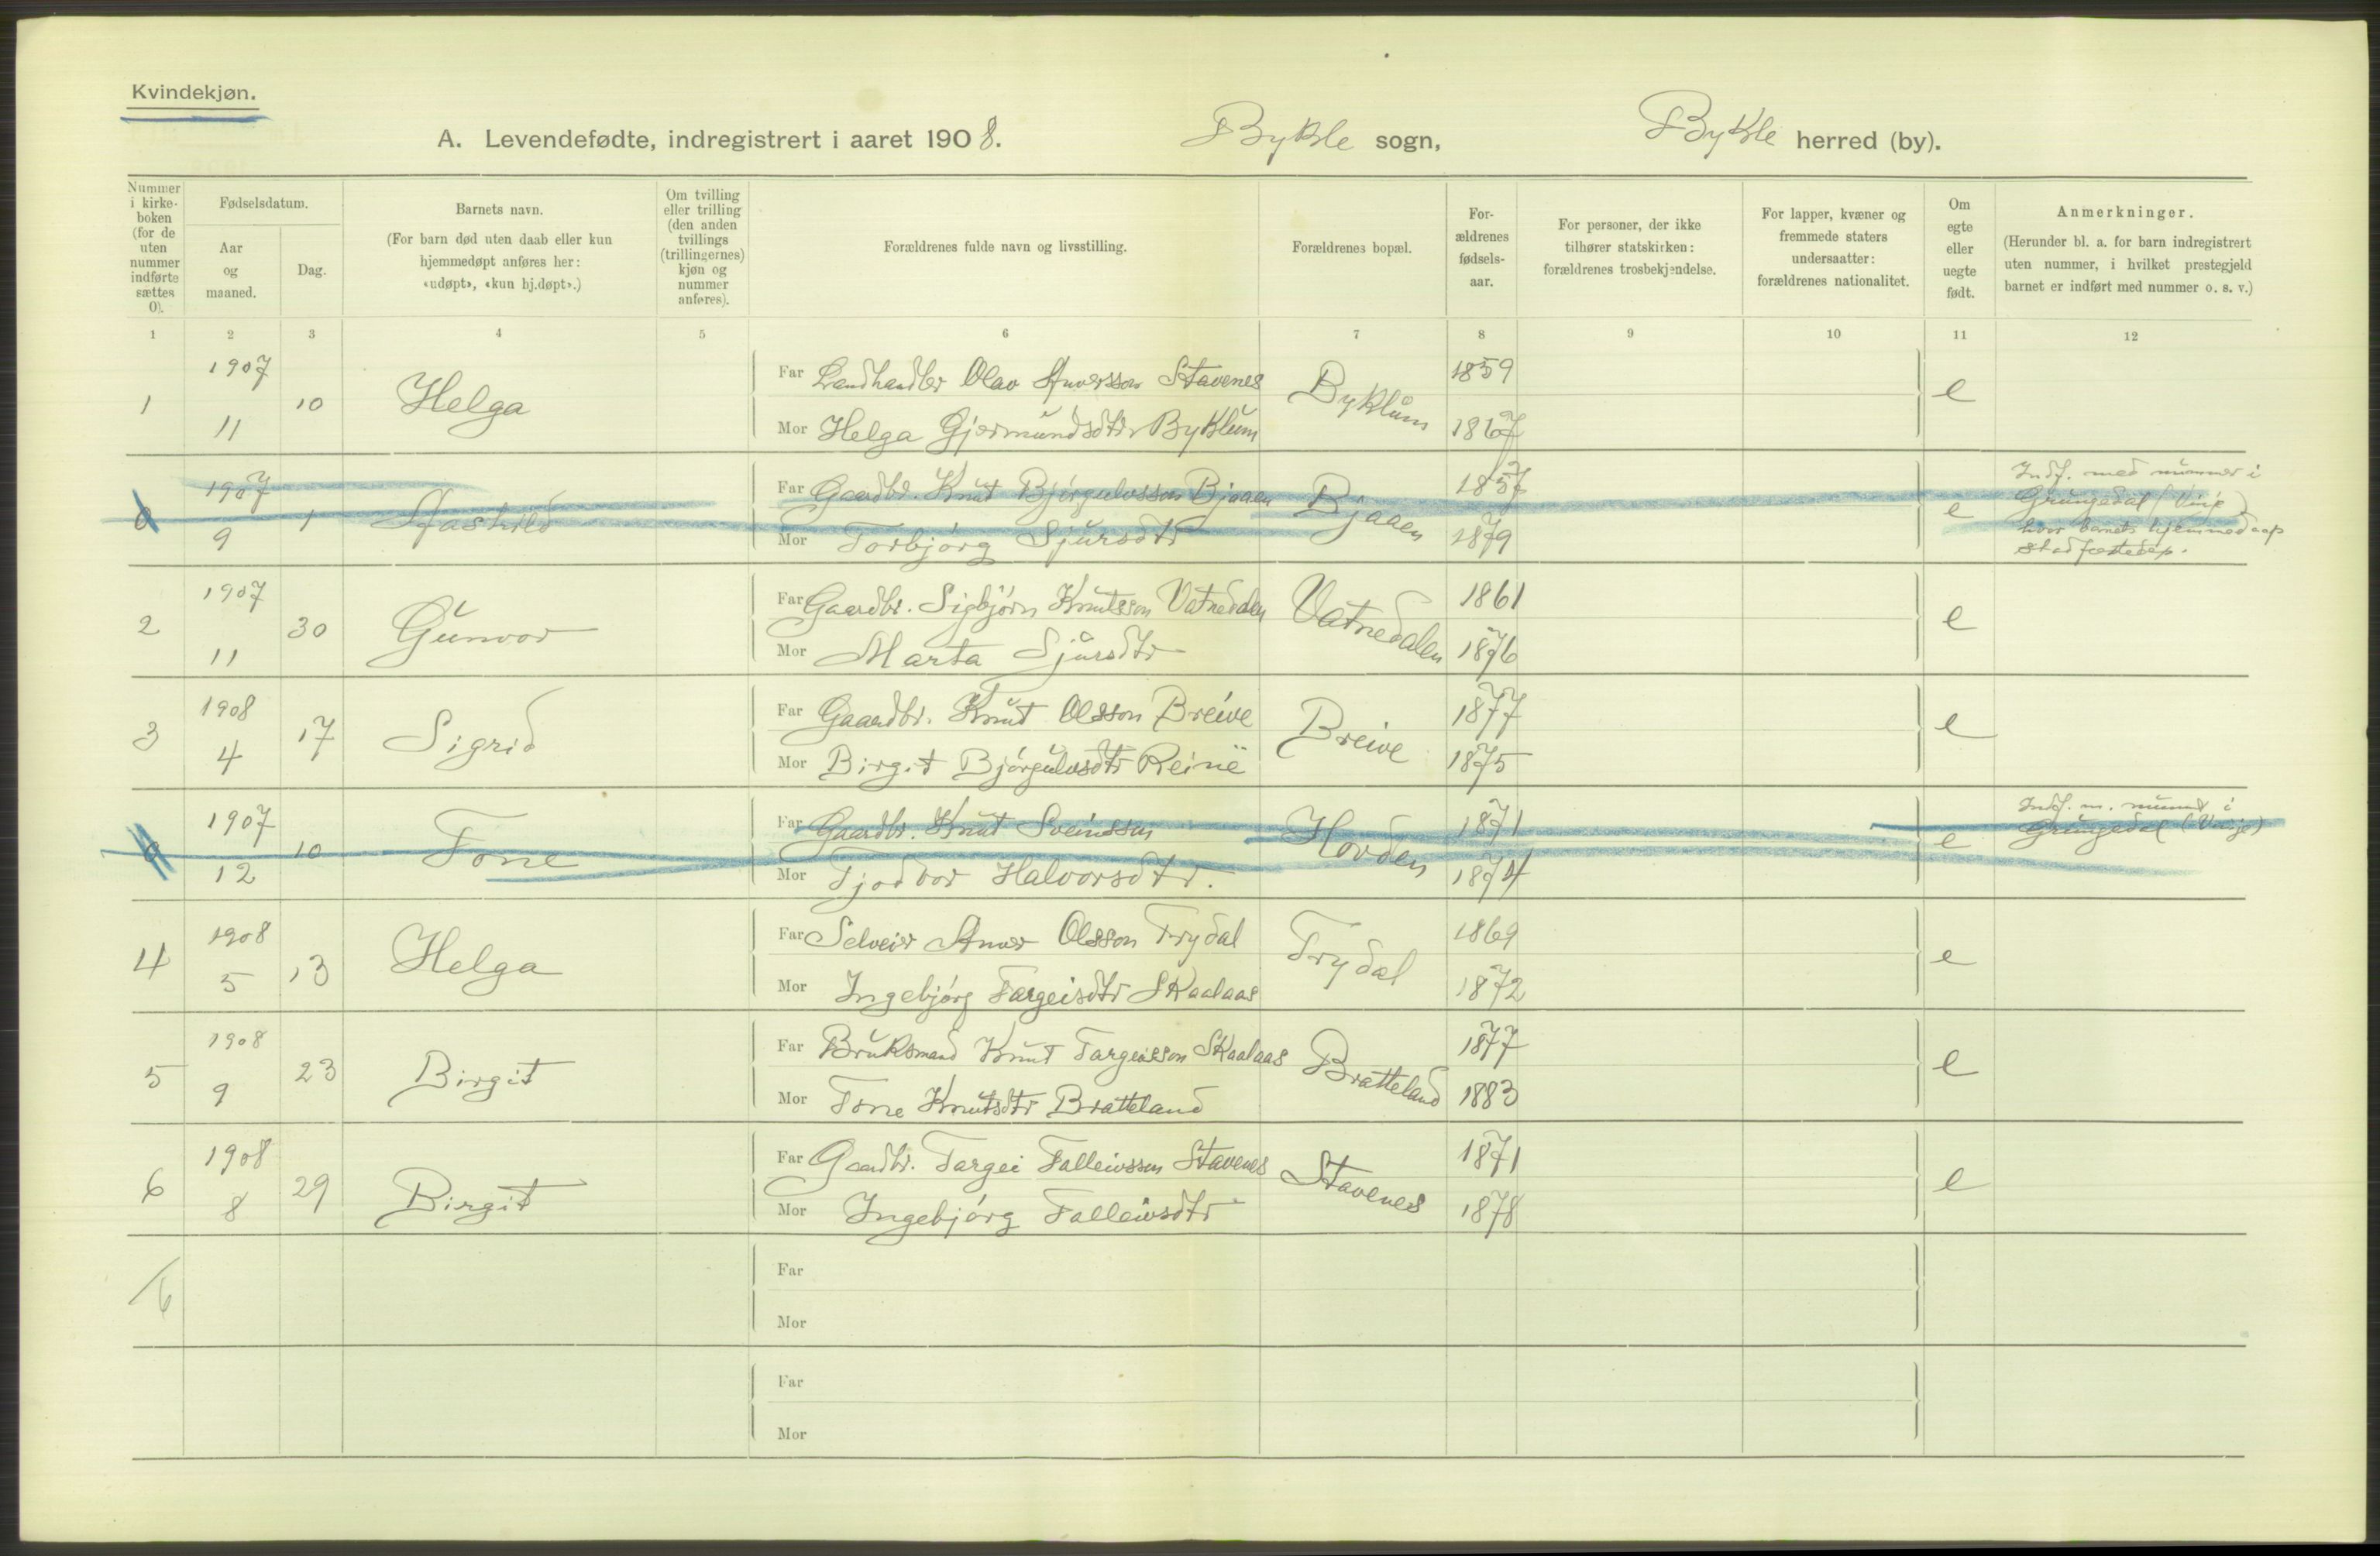 Kvindekjøn.
A. Levendefødte, indregistrert i aaret 1908. Bykle sogn, Bykle herred (by).
Nummer i kirke-boken (for de uten nummer indførte sættes 0).
Fødselsdatum.
Aar og maaned.
Dag.
Barnets navn.
(For barn død uten daab eller kun hjemmedøpt anføres her: «udøpt», «kun hj.døpt».)
Om tvilling eller trilling (den anden tvillings (trillingernes) kjøn og nummer anføres).
Forældrenes fulde navn og livsstilling.
Forældrenes bopæl.
For-ældrenes fødsels-aar.
For personer, der ikke tilhører statskirken: forældrenes trosbekjendelse.
For lapper, kvæner og fremmede staters undersaatter: forældrenes nationalitet.
Om egte eller uegte født.
Anmerkninger.
(Herunder bl. a. for barn indregistrert uten nummer, i hvilket prestegjeld barnet er indført med nummer o. s. v.)
1 2 3 4 5 6 7 8 9 10 11 12
1 1907 11 10 Helga Far Landhandler Olav Anversson Stavenes Byklum 1859 e
Mor Helga Gjermundsdtr Byklum 1867
0 1907 9 1 Aashild Far Gaardbr. Knut Bjørgulvsson Bjaaen Bjaaen 1857 e Indf. med nummer i
Grungedal (Vinje)
Mor Torbjørg Sjursdtr 1879 hvor barnets hjemmedaap
stadfæstedes.
2 1907 11 30 Gunvor Far Gaardbr. Sigbjørn Knutsson Vatnedalen Vatnedalen 1861 e
Mor Marta Sjursdtr 1876
3 1908 4 17 Sigrid Far Gaardbr. Knut Olsson Breive Breive 1877 e
Mor Birgit Bjørgulvsdtr 1875
0 1907 12 10 Tone Far Gaardbr. Knut Sveinsson Hovden 1871 e Indf. m. nummer i
Grungedal (Vinje)
Mor Tjodvor Halvorsdtr. 1874
4 1908 5 13 Helga Far Selveier Anver Olsson Trydal Trydal 1869 e
Mor Ingebjørg Targeisdtr Skaalaas 1872
5 1908 9 23 Birgit Far Bruksmand Knut Targeisson Skaalaas Bratteland 1877 e
Mor Tone Knutsdtr Bratteland 1883
6 1908 8 29 Birgit Far Gaardbr. Targei Talleivsson Stavenes Stavenes 1871 e
Mor Ingebjørg Talleivsdtr 1878
6 Far
Mor
Far
Mor